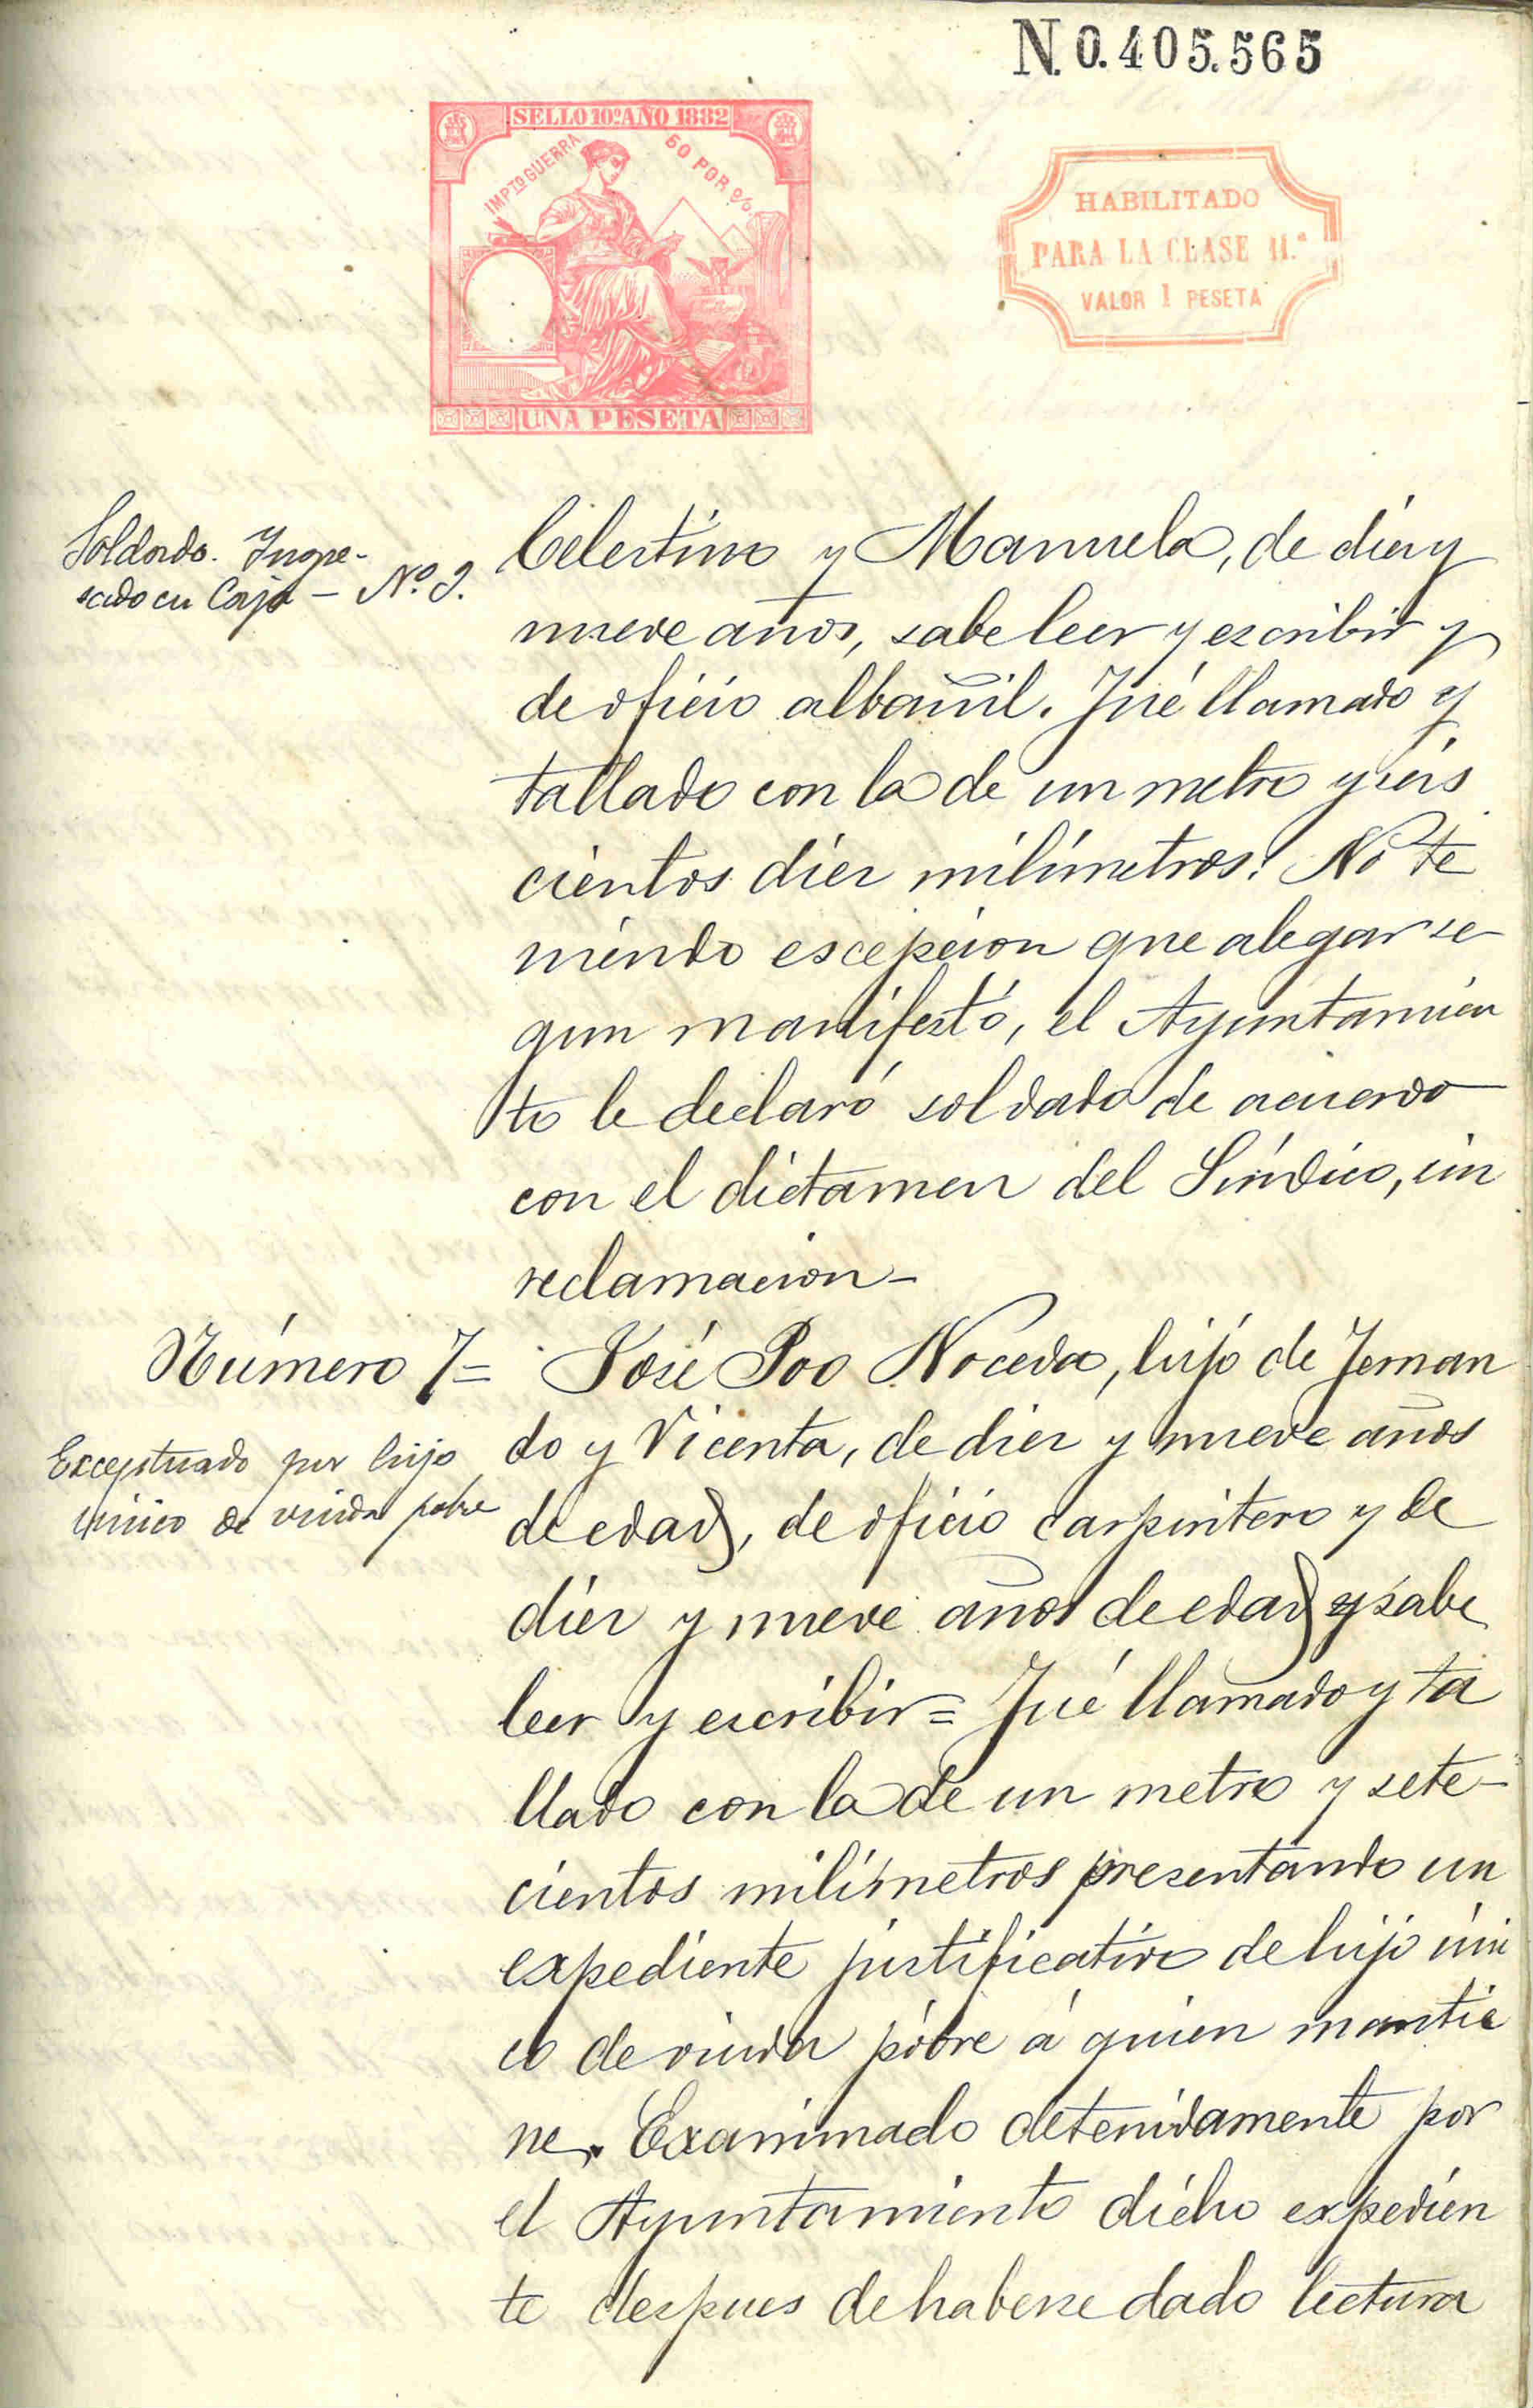 N. 0.405.565
SELLO 10º AÑO 1882
IMPTO GUERRA 50 POR %
UNA PESETA
HABILITADO
PARA LA CLASE 11.ª
VALOR 1 PESETA
Soldado. Ingre-
sado en Caja – Nº. 9.
Celestino y Manuela, de diez y
nueve años, sabe leer y escribir y
de oficio albañil. Fué llamado y
tallado con la de un metro y seis
cientos diez milímetros. No te
niendo escepcion que alegar se
gun manifestó, el Ayuntamien
to le declaró soldado de acuerdo
con el dictamen del Síndico, sin
reclamacion –
Número 7 =
José Poo Noceda, hijo de Fernan
do y Vicenta, de diez y nueve años
de edad, de oficio carpintero y de
diez y nueve años de edad y sabe
leer y escribir = Fué llamado y ta
llado con la de un metro y sete-
cientos milímetros presentando un
expediente justificativo de hijo úni
co de viuda pobre á quien mantie
ne. Examinado detenidamente por
el Ayuntamiento dicho expedien
te despues de haberse dado lectura
Exceptuado por hijo
único de viuda pobre